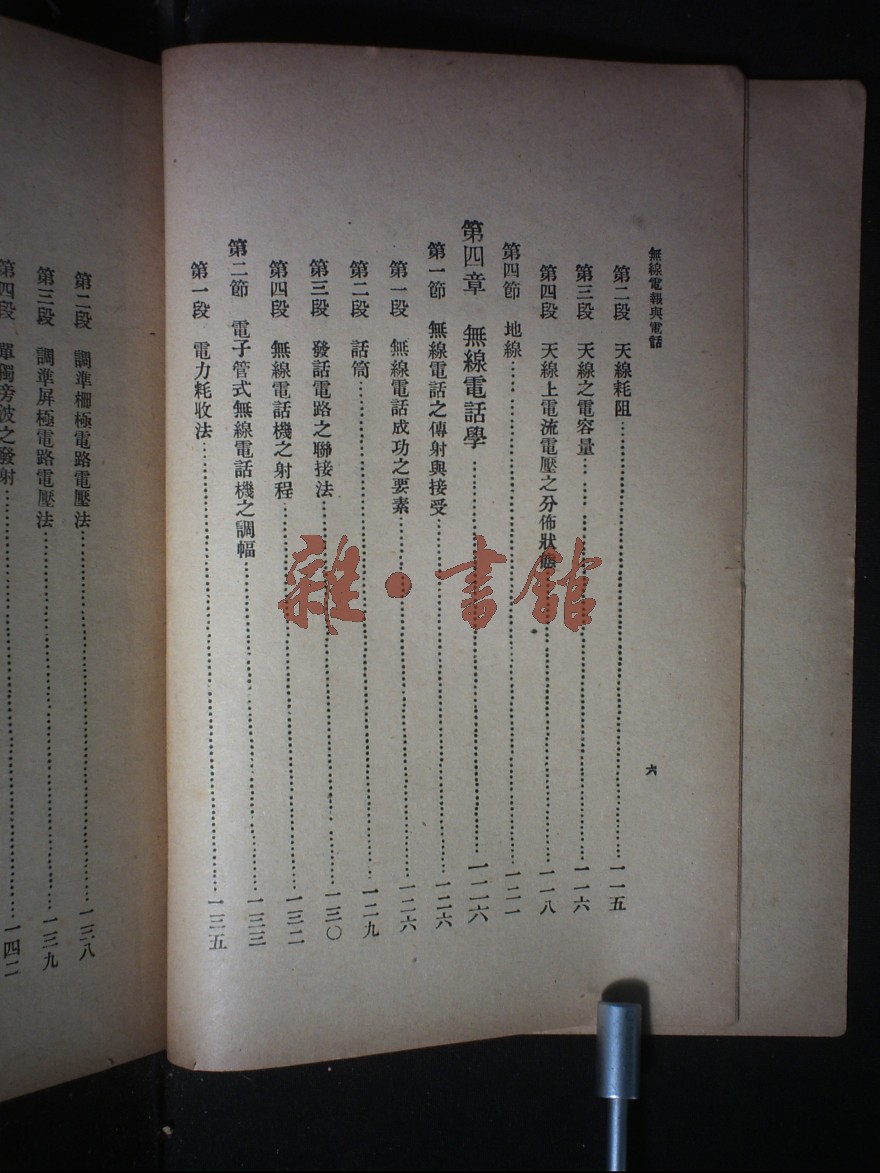 無線電報與電話
六
第二段　天線耗阻……一一五
第三段　天線之電容量……一一六
第四段　天線上電流電壓之分佈狀態……一一八
第四節　地線……一二一
第四章　無線電話學……一二六
第一節　無線電話之傳射與接受……一二六
第一段　無線電話成功之要素……一二六
第二段　話筒……一二九
第三段　發話電路之聯接法……一三〇
第四段　無線電話機之射程……一三二
第二節　電子管式無線電話機之調幅……一三三
第一段　電力耗收法……一三五
第二段　調準柵極電路電壓法……一三八
第三段　調準屏極電路電壓法……一三九
第四段　單獨旁波之發射……一四二
雜·書館